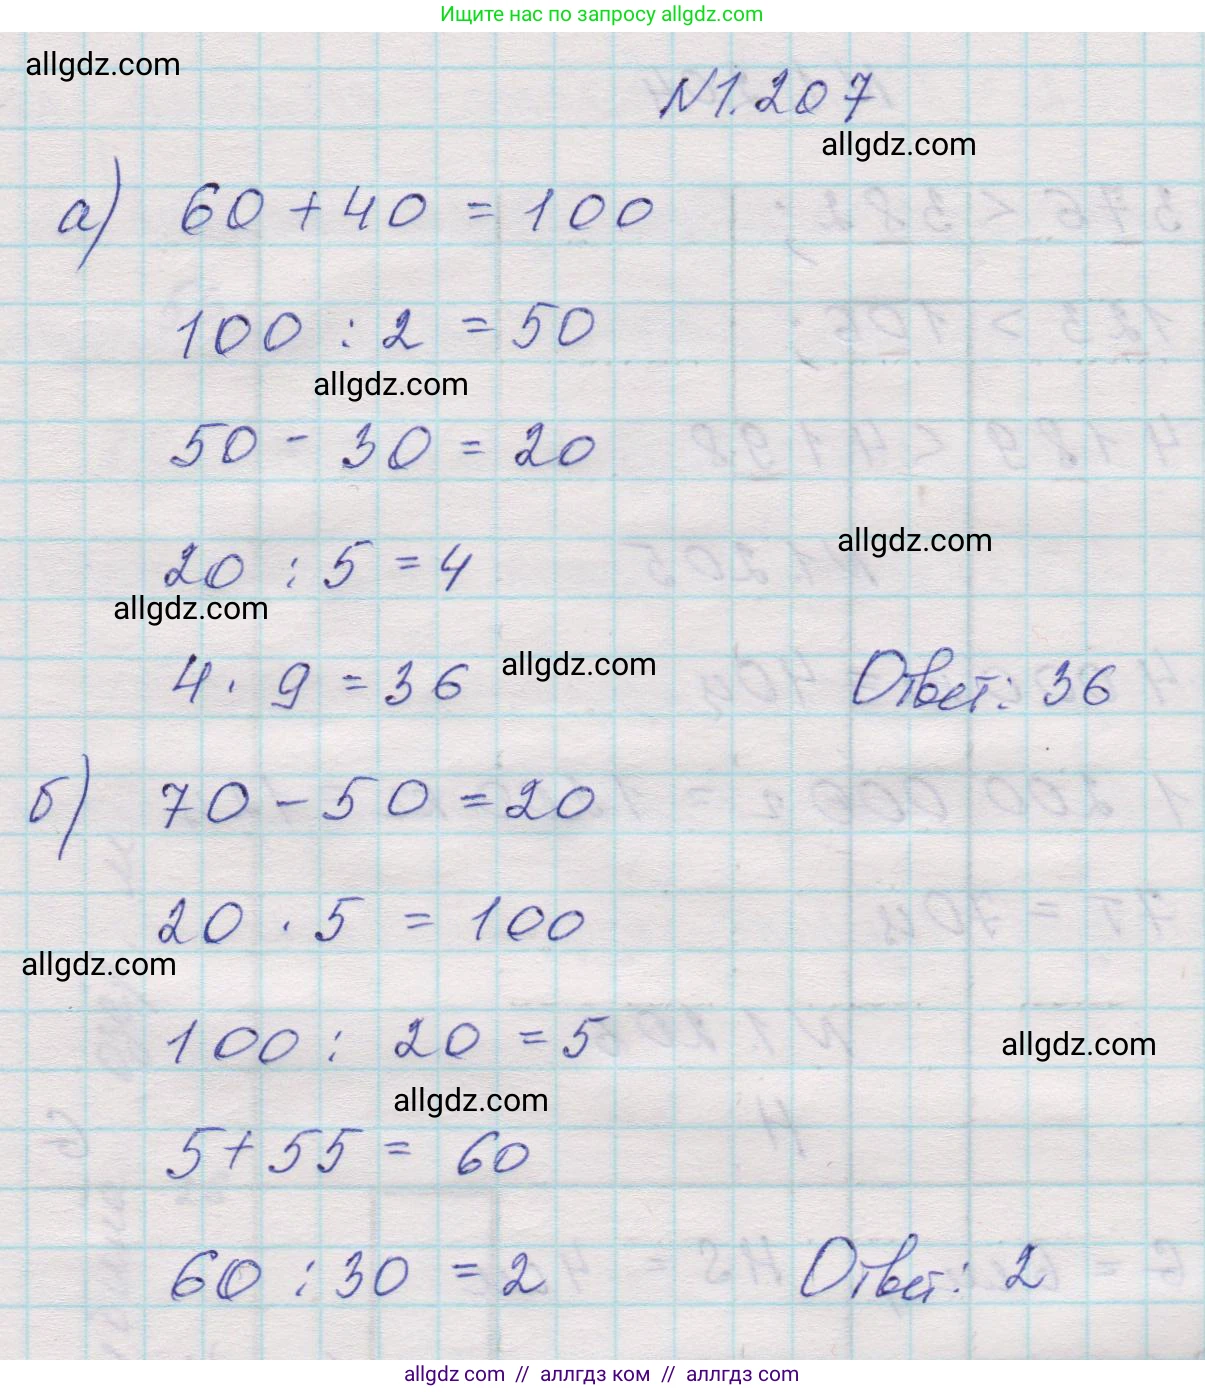 Ищите нас по запросу allgdz.com
allgdz.com
N1.207
allgdz.com
а) 60 + 40 = 100
100 : 2 = 50
allgdz.com
50 - 30 = 20
allgdz.com
20 : 5 = 4
allgdz.com
4 · 9 = 36
allgdz.com
Ответ: 36
б) 70 - 50 = 20
20 · 5 = 100
allgdz.com
100 : 20 = 5
allgdz.com
allgdz.com
5 + 55 = 60
60 : 30 = 2
Ответ: 2
allgdz.com // аллгдз ком // аллгдз.com